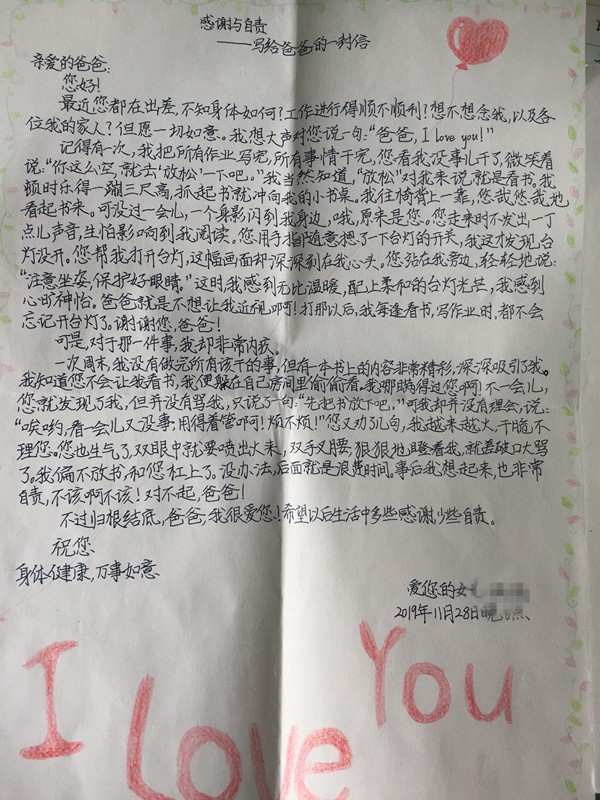 感谢与自责
——写给爸爸的一封信
亲爱的爸爸：
您好！
最近您都在出差，不知身体如何？工作进行得顺不顺利？想不想念我，以及各
位我的家人？但愿一切如意。我想大声对您说一句：“爸爸，I love you！”
记得有一次，我把所有作业写完，所有事情干完，您看我没事儿干了，微笑着
说：“你这么空，就去‘放松’一下吧。”我当然知道，“放松”对我来说就是看书。我
顿时乐得一蹦三尺高，抓起书就冲向我的小书桌。我往椅背上一靠，悠哉悠哉地
看起书来。可没过一会儿，一个身影闪到我身边，哦，原来是您。您走来时不发出一丁
点儿声音，生怕影响到我阅读。您用手指随意摁了一下台灯的开关，我这才发现，台
灯没开。您帮我打开台灯，这幅画面却深深刻在我心头。您站在我旁边，轻轻地说：
“注意坐姿，保护好眼睛。”这时我感到无比温暖，配上柔和的台灯光芒，我感到
心旷神怡。爸爸就是不想让我近视啊！打那以后，我每逢看书，写作业时，都不会
忘记开台灯了。谢谢您，爸爸！
可是，对于那一件事，我却非常内疚。
一次周末，我没有做完所有该干的事，但有一本书上的内容非常精彩，深深吸引了我。
我知道您不会让我看书，我便躲在自己房间里偷偷看。我哪瞒得过您啊！不一会儿，
您就发现了我，但并没有骂我，只说了一句：“先把书放下吧。”可我却并没有理会，说：
“唉哟，看一会儿又没事，用得着管吗！烦不烦！”您又劝了几句，我越来越火，干脆不
理您。您也生气了，双眼中就要喷出火来，双手叉腰，狠狠地瞪着我，就差破口大骂
了。我偏不放书，和您杠上了。没办法，后面就是浪费时间。事后我想起来，也非常
自责，不该啊不该！对不起，爸爸！
不过归根结底，爸爸，我很爱您！希望以后生活中多些感谢，少些自责。
祝您
身体健康，万事如意
爱您的女
2019年11月28日晚
I Love You